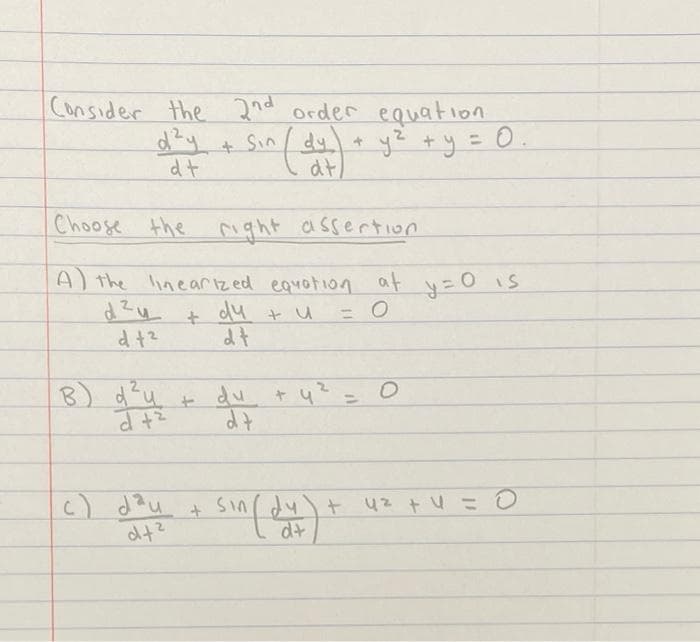 Consider the 2nd order equation
d²y/dt + sin(dy/dt) + y² + y = 0.
Choose the right assertion
A) the linearized equation at y=0 is
d²u/dt² + du/dt + u = 0
B) d²u/dt² + du/dt + u² = 0
C) d²u/dt² + sin(du/dt) + u2 + u = 0